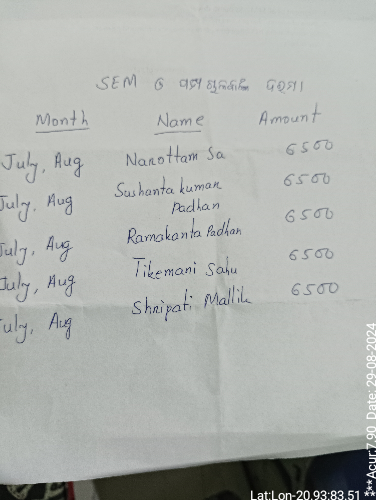 SEM ଓ
Month Name Amount
July, Aug Narottam Sa 6500
July, Aug Sushanta kumar 6500
Padhan
July, Aug Ramakanta Padhan 6500
July, Aug Tikemani Sahu 6500
July, Aug Shripati Mallik 6500
Lat:Lon-20.93:83.51
***Acur:7.90 Date: 29-08-2024